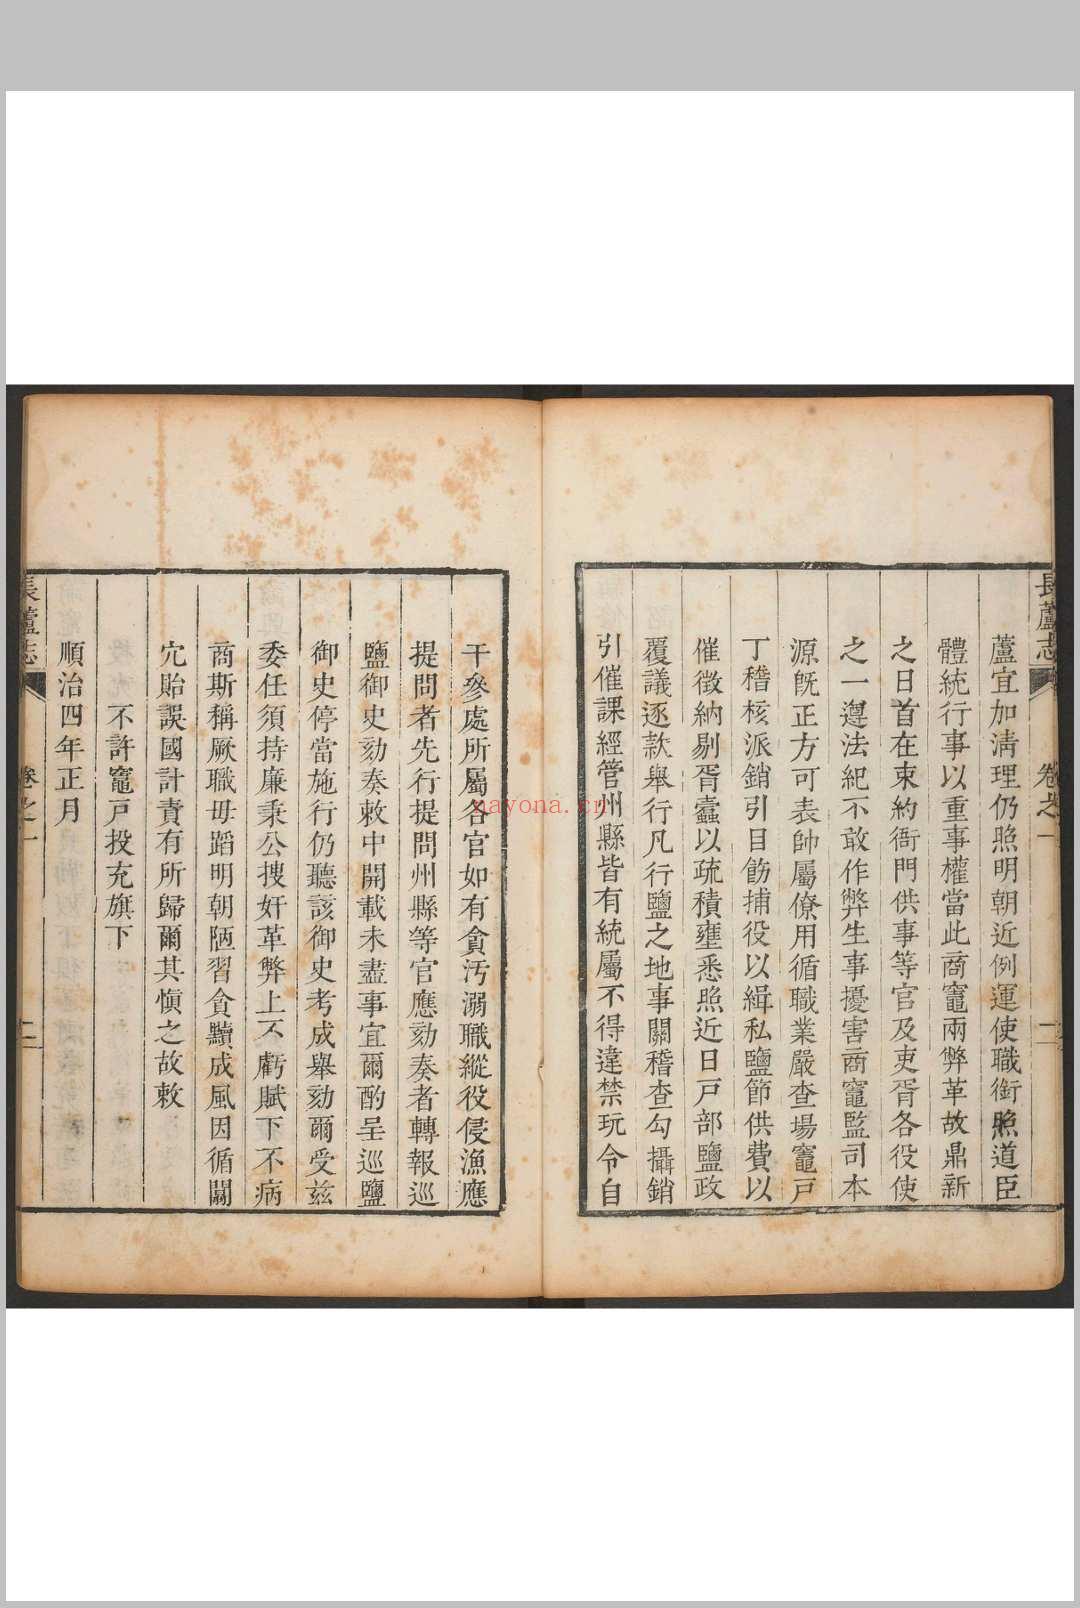 長蘆志
卷之一
二
蘆宜加淸理仍照明朝近例運使職銜照道臣
體統行事以重事權當此商竈兩弊革故鼎新
之日首在束約衙門供事等官及吏胥各役使
之一遵法紀不敢作弊生事擾害商竈監司本
源旣正方可表帥屬僚用循職業嚴查場竈戸
丁稽核派銷引目飭捕役以緝私鹽節供費以
催徵納剔胥蠹以疏積壅悉照近日戸部鹽政
覆議逐款舉行凡行鹽之地事關稽查勾攝銷
引催課經管州縣皆有統屬不得違禁玩令自
干參處所屬各官如有貪汚溺職縱役侵漁應
提問者先行提問州縣等官應劾奏者轉報巡
鹽御史劾奏敕中開載未盡事宜爾酌呈巡鹽
御史停當施行仍聽該御史考成舉劾爾受茲
委任須持廉秉公搜奸革弊上不虧賦下不病
商斯稱厥職毋蹈明朝陋習貪黷成風因循闒
冗貽誤國計責有所歸爾其愼之故敕
不許竈戸投充旗下
順治四年正月
長蘆志
卷之一
二
nayona.cn